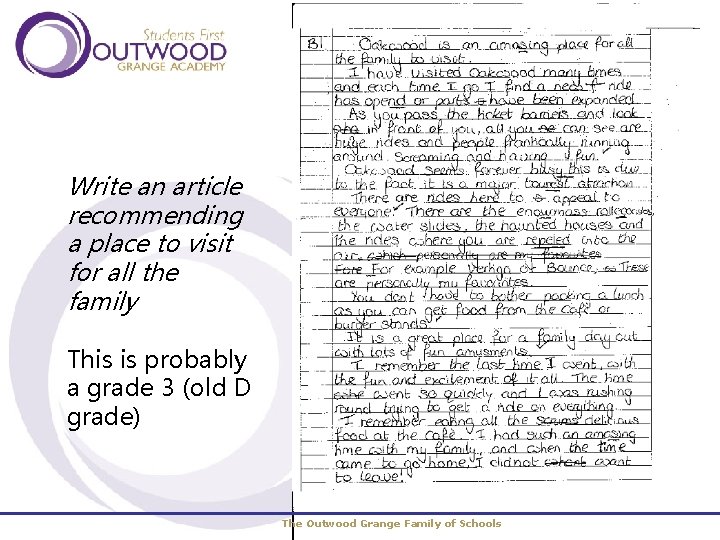 Students First
OUTWOOD
GRANGE ACADEMY
Write an article
recommending
a place to visit
for all the
family
This is probably
a grade 3 (old D
grade)
B1 Oakwood is an amazing place for all
the family to visit.
I have visited Oakwood many times
and each time I go I find a new ride
has opend or parts have been expanded.
As you pass the ticket barriers and look
in front of you, all you can see are
huge rides and people frantically running
around. Screaming and having fun.
Oakwood seems forever busy this is due
to the fact, it is a major tourest attraction
There are rides here to appeal to
everyone. There are the enowmass rollercoasters,
the water slides, the haunted houses and
the rides where you are repeled into the
air, which personally are my favourites
Fore For example Vertigo or Bounce, These
are personally my favourites.
You dont have to bother packing a lunch
as you can get food from the café or
burger stands.
It is a great place for a family day out
with lots of fun amusments.
I remember the last time I went, with
the fun and excitement of it all. The time
went so quickly and I was rushing
round trying to get a ride on everything.
I remember eating all the delicious
food at the café. I had such an amasing
time with my family, and when the time
came to go home, I did not want
to leave!
The Outwood Grange Family of Schools